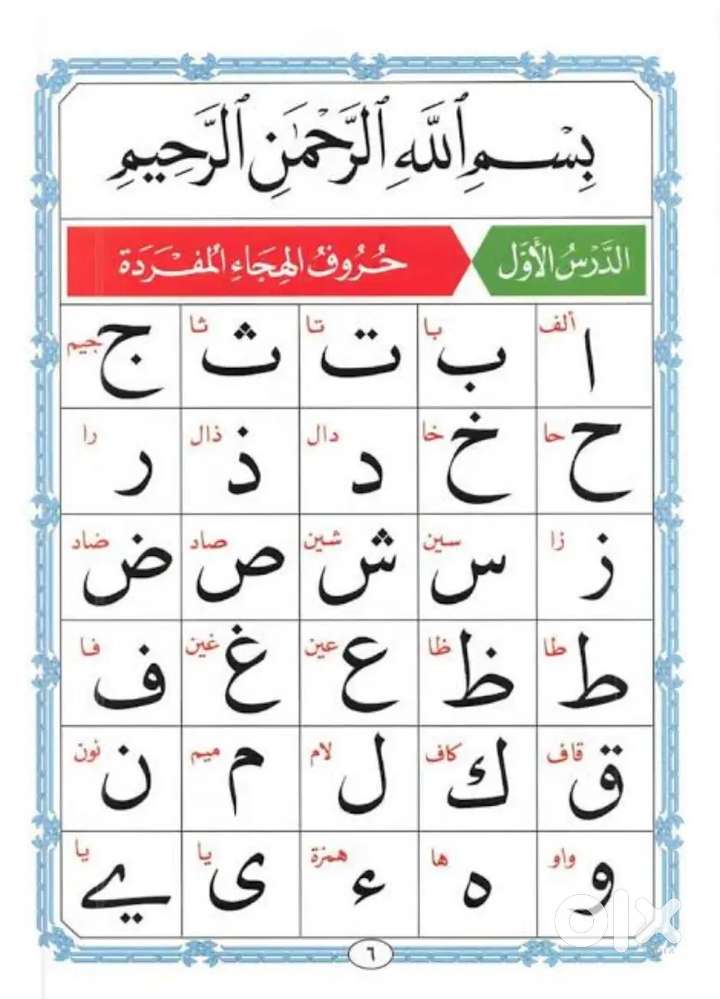 بِسْمِ ٱللَّهِ ٱلرَّحْمَٰنِ ٱلرَّحِيمِ
الدَّرْسُ الْأَوَّل حُرُوفُ الهِجَاءِ المُفْرَدَة
ألف با تا ثا جيم
ا ب ت ث ج
حا خا دال ذال را
ح خ د ذ ر
زا سين شين صاد ضاد
ز س ش ص ض
طا ظا عين غين فا
ط ظ ع غ ف
قاف كاف لام ميم نون
ق ك ل م ن
واو ها همزة يا يا
و ه ء ى ے
٦
olx